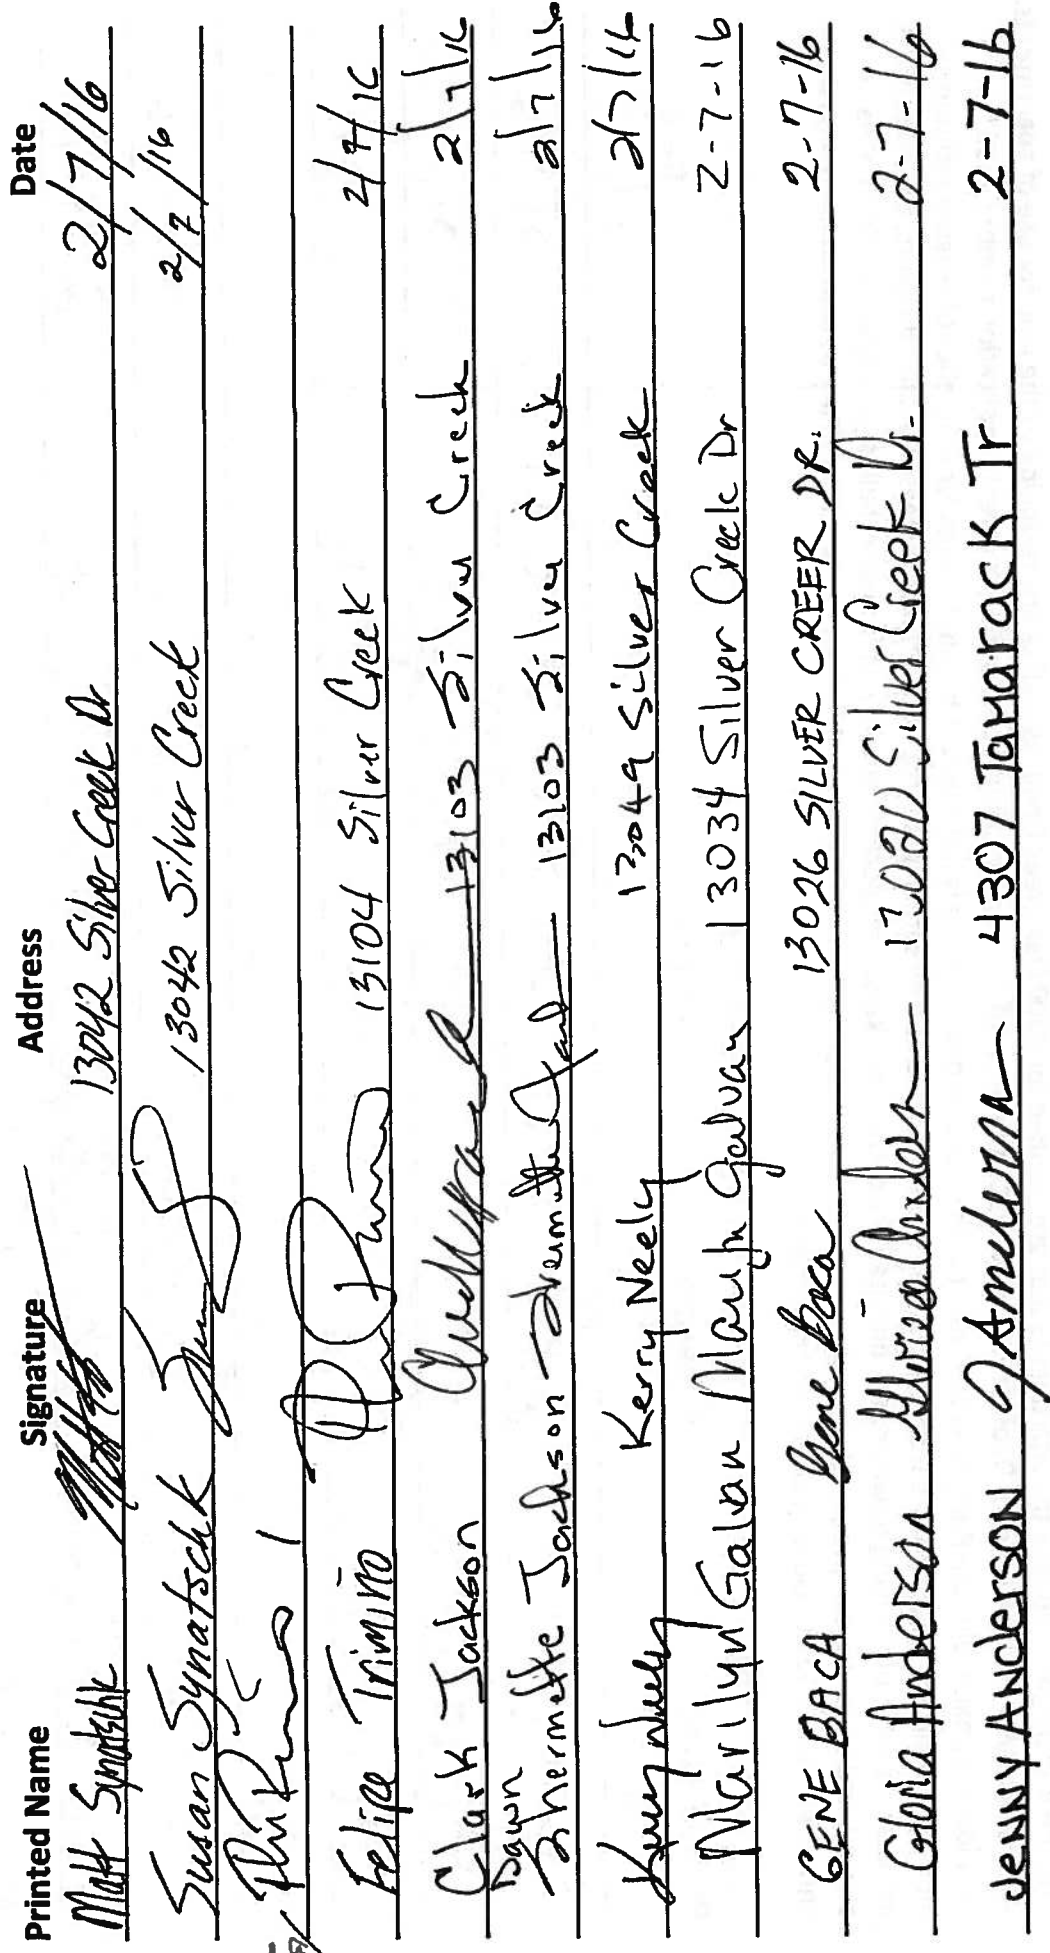 Printed Name Signature Address Date
Matt Synatschk 13042 Silver Creek Dr 2/7/16
Susan Synatschk 13042 Silver Creek 2/7/16
Felipe Trimiño 13104 Silver Creek 2/7/16
Clark Jackson 13103 Silver Creek 2/7/16
Dawn
Shermette Jackson 13103 Silver Creek 2/7/16
Kerry Neely Kerry Neely 13049 Silver Creek 2/7/16
Marilyn Galvan Marilyn Galvan 13034 Silver Creek Dr 2-7-16
GENE BACA Gene Baca 13026 SILVER CREEK DR. 2-7-16
Gloria Anderson Gloria Anderson 13020 Silver Creek Dr. 2-7-16
Jenny Anderson J Anderson 4307 Tamarack Tr 2-7-16